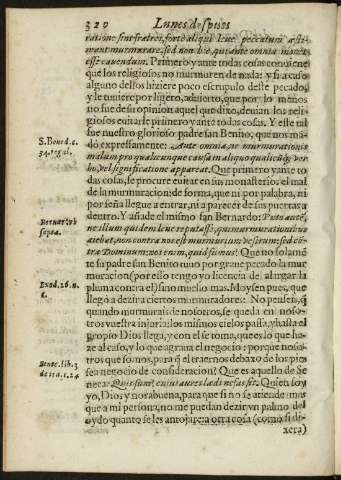 320 Lunes despues
ratione sint fratres, forte aliqui leue peccatum æsti-
mant murmurare, sed non ille, qui ante omnia monet
esse cauendum. Primero y ante todas cosas conuiene
que los religiosos no murmuren de nada: y si a caso
alguno dellos hiziere poco escrupulo deste pecado,
y le tuuiere por lijero, aduierto, que por lo menos
no fue de su opinion aquel que dixo, deuian los reli-
giosos euitarle primero y ante todas cosas. Y este tal
fue nuestro glorioso padre san Benito, que nos mã-
S. Bened. c.
34. regul.
dò expressamente: Ante omnia, ne murmurationis
malum pro qualcunque causa in aliquo qualicũq; ver
bo, vel significatione appareat. Que primero y ante to
das cosas, le procure euitar en sus monasterios el mal
de la murmuracion: de forma, que ni por palabra, ni
por seña llegue a entrar, ni a parecer de sus puertas a
Bernar. vbi
supra.
dentro. Y añade el mismo san Bernardo: Puto autẽ,
ne illum quidem leue reputasse, qui murmurationibus
aiebat, non contra nos est murmurium vestrum: sed cõ-
tra Dominum; nos enim, quid sumus? Que no solamẽ
te su padre san Benito tuuo por graue pecado la mur
muracion (por esto tengo yo licencia de alargar la
Exod. 16. n.
8.
pluma contra el) sino mesmo mas. Moysen pues, que
llegò a dezir a ciertos murmuradores: No penseis, q̃
quando murmurais de nosotros, se queda en noso-
tros vuestra injuria: los mismos cielos passa, y hasta el
propio Dios llega, y con el se toma, que es lo que ha-
ze al caso, y lo que agraua el negocio: porque noso-
tros que somos, para q̃ el traernos debaxo de los pies
Senec. lib. 3
de ira. c. 24
sea negocio de consideracion? Que es aquello de Se
neca: Quis sum? cuius aures lædi nefas sit. Quien soy
yo, Dios y norabuena, para que si no se atiende mas
que a mi persona, no me puedan dezir vn palmo del
oydo quanto se les antojare; a otra cosa (como si di-
xera)